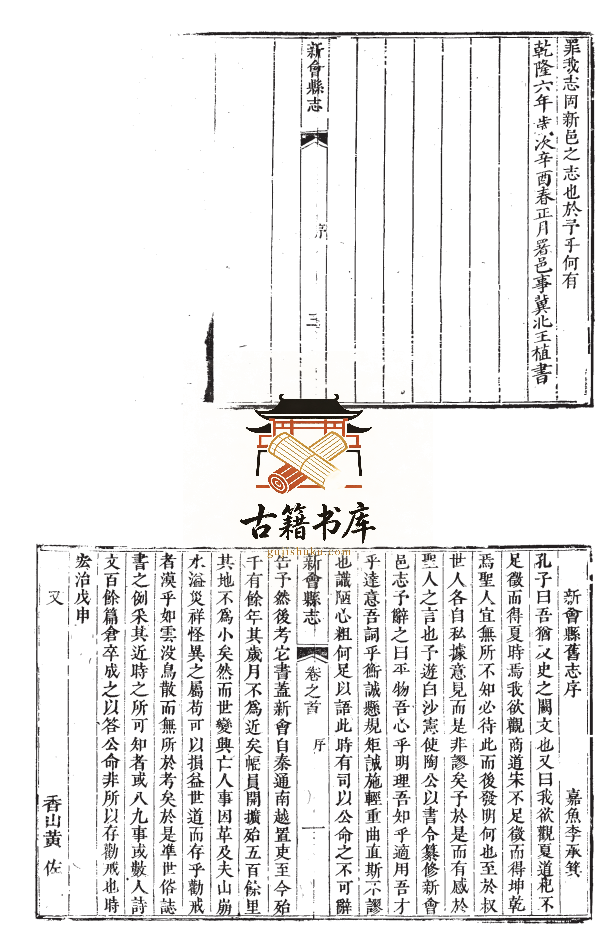 罪我志固新邑之志也於予乎何有
乾隆六年歲次辛酉春正月署邑事冀北王植書
新會縣志
序
三
古籍书库
gujishuku.com
新會縣舊志序
嘉魚李承箕
孔子曰吾猶及史之闕文也又曰我欲觀夏道杞不
足徵而得夏時焉我欲觀商道宋不足徵而得坤乾
焉聖人宜無所不知必待此而後發明何也至於叔
世人各自私據意見而是非謬矣予於是而有感於
聖人之言也予遊白沙憲使陶公以書令纂修新會
邑志予辭之曰平物吾心乎明理吾知乎適用吾才
乎達意吾詞乎衡誠懸規矩誠施輕重曲直斯不謬
也識陋心粗何足以語此時有司以公命之不可辭
新會縣志
卷之首
序
告予然後考它書蓋新會自秦通南越置吏至今殆
千有餘年其歲月不為近矣幅員開擴殆五百餘里
其地不為小矣然而世變興亡人事因革及夫山崩
水溢災祥怪異之屬苟可以損益世道而存乎勸戒
者漠乎如雲沒鳥散而無所於考矣於是準世俗誌
書之例采其近時之所可知者或八九事或數人詩
文百餘篇倉卒成之以答公命非所以存勸戒也時
宏治戊申
又
香山黃佐